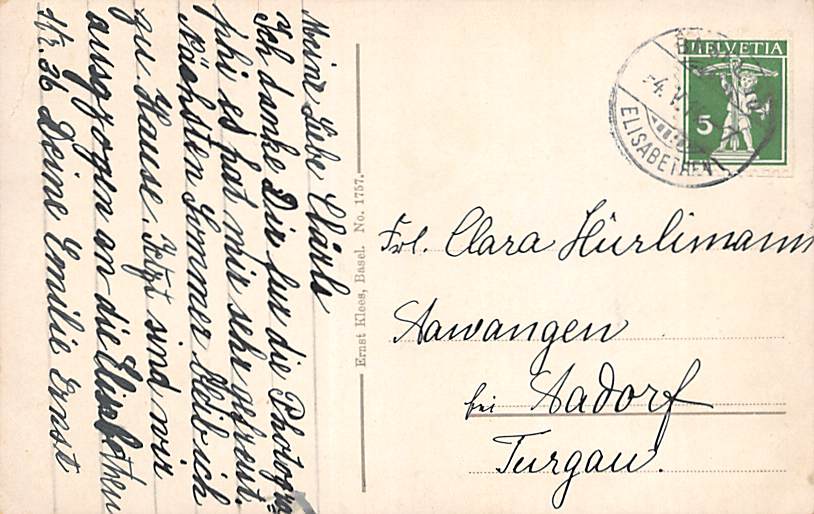 Meine Liebe Clärli
Ich danke Dir für die Photogra
phi es hat mir sehr gefreut.
Nächsten Sommer bleib ich
zu Hause. Jetzt sind wir
ausgzogen an die Elisabethen
str. 36 Deine Emilie Ernst
Ernst Klees, Basel. No. 1757.
HELVETIA
5
BASEL
-4.V.
ELISABETHEN
Frl. Clara Hürlimann
Aawangen
bei Aadorf
Turgau.